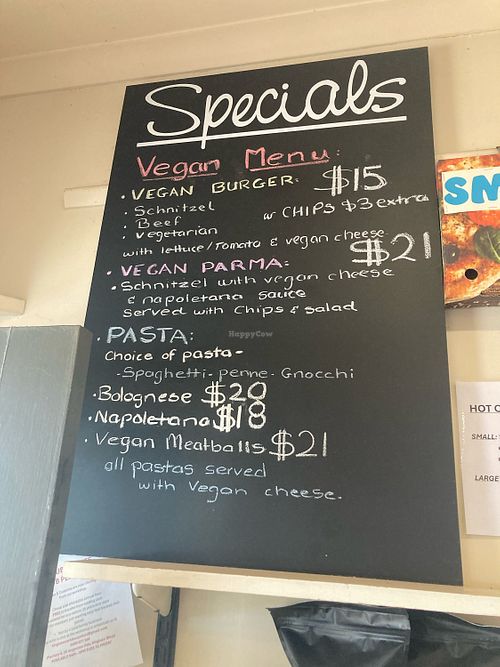 Specials
Vegan Menu:
• VEGAN BURGER: $15
• Schnitzel
• Beef
• Vegetarian
w CHIPS $3 extra
with lettuce/Tomato & vegan cheese
• VEGAN PARMA: $21
• Schnitzel with vegan cheese
& napoletana sauce
Served with Chips & salad
• PASTA:
Choice of pasta -
- Spaghetti - penne - Gnocchi
• Bolognese $20
• Napoletana $18
• Vegan Meatballs $21
all pastas served
with Vegan cheese.
HappyCow
SN
HOT
SMALL:
LARGE